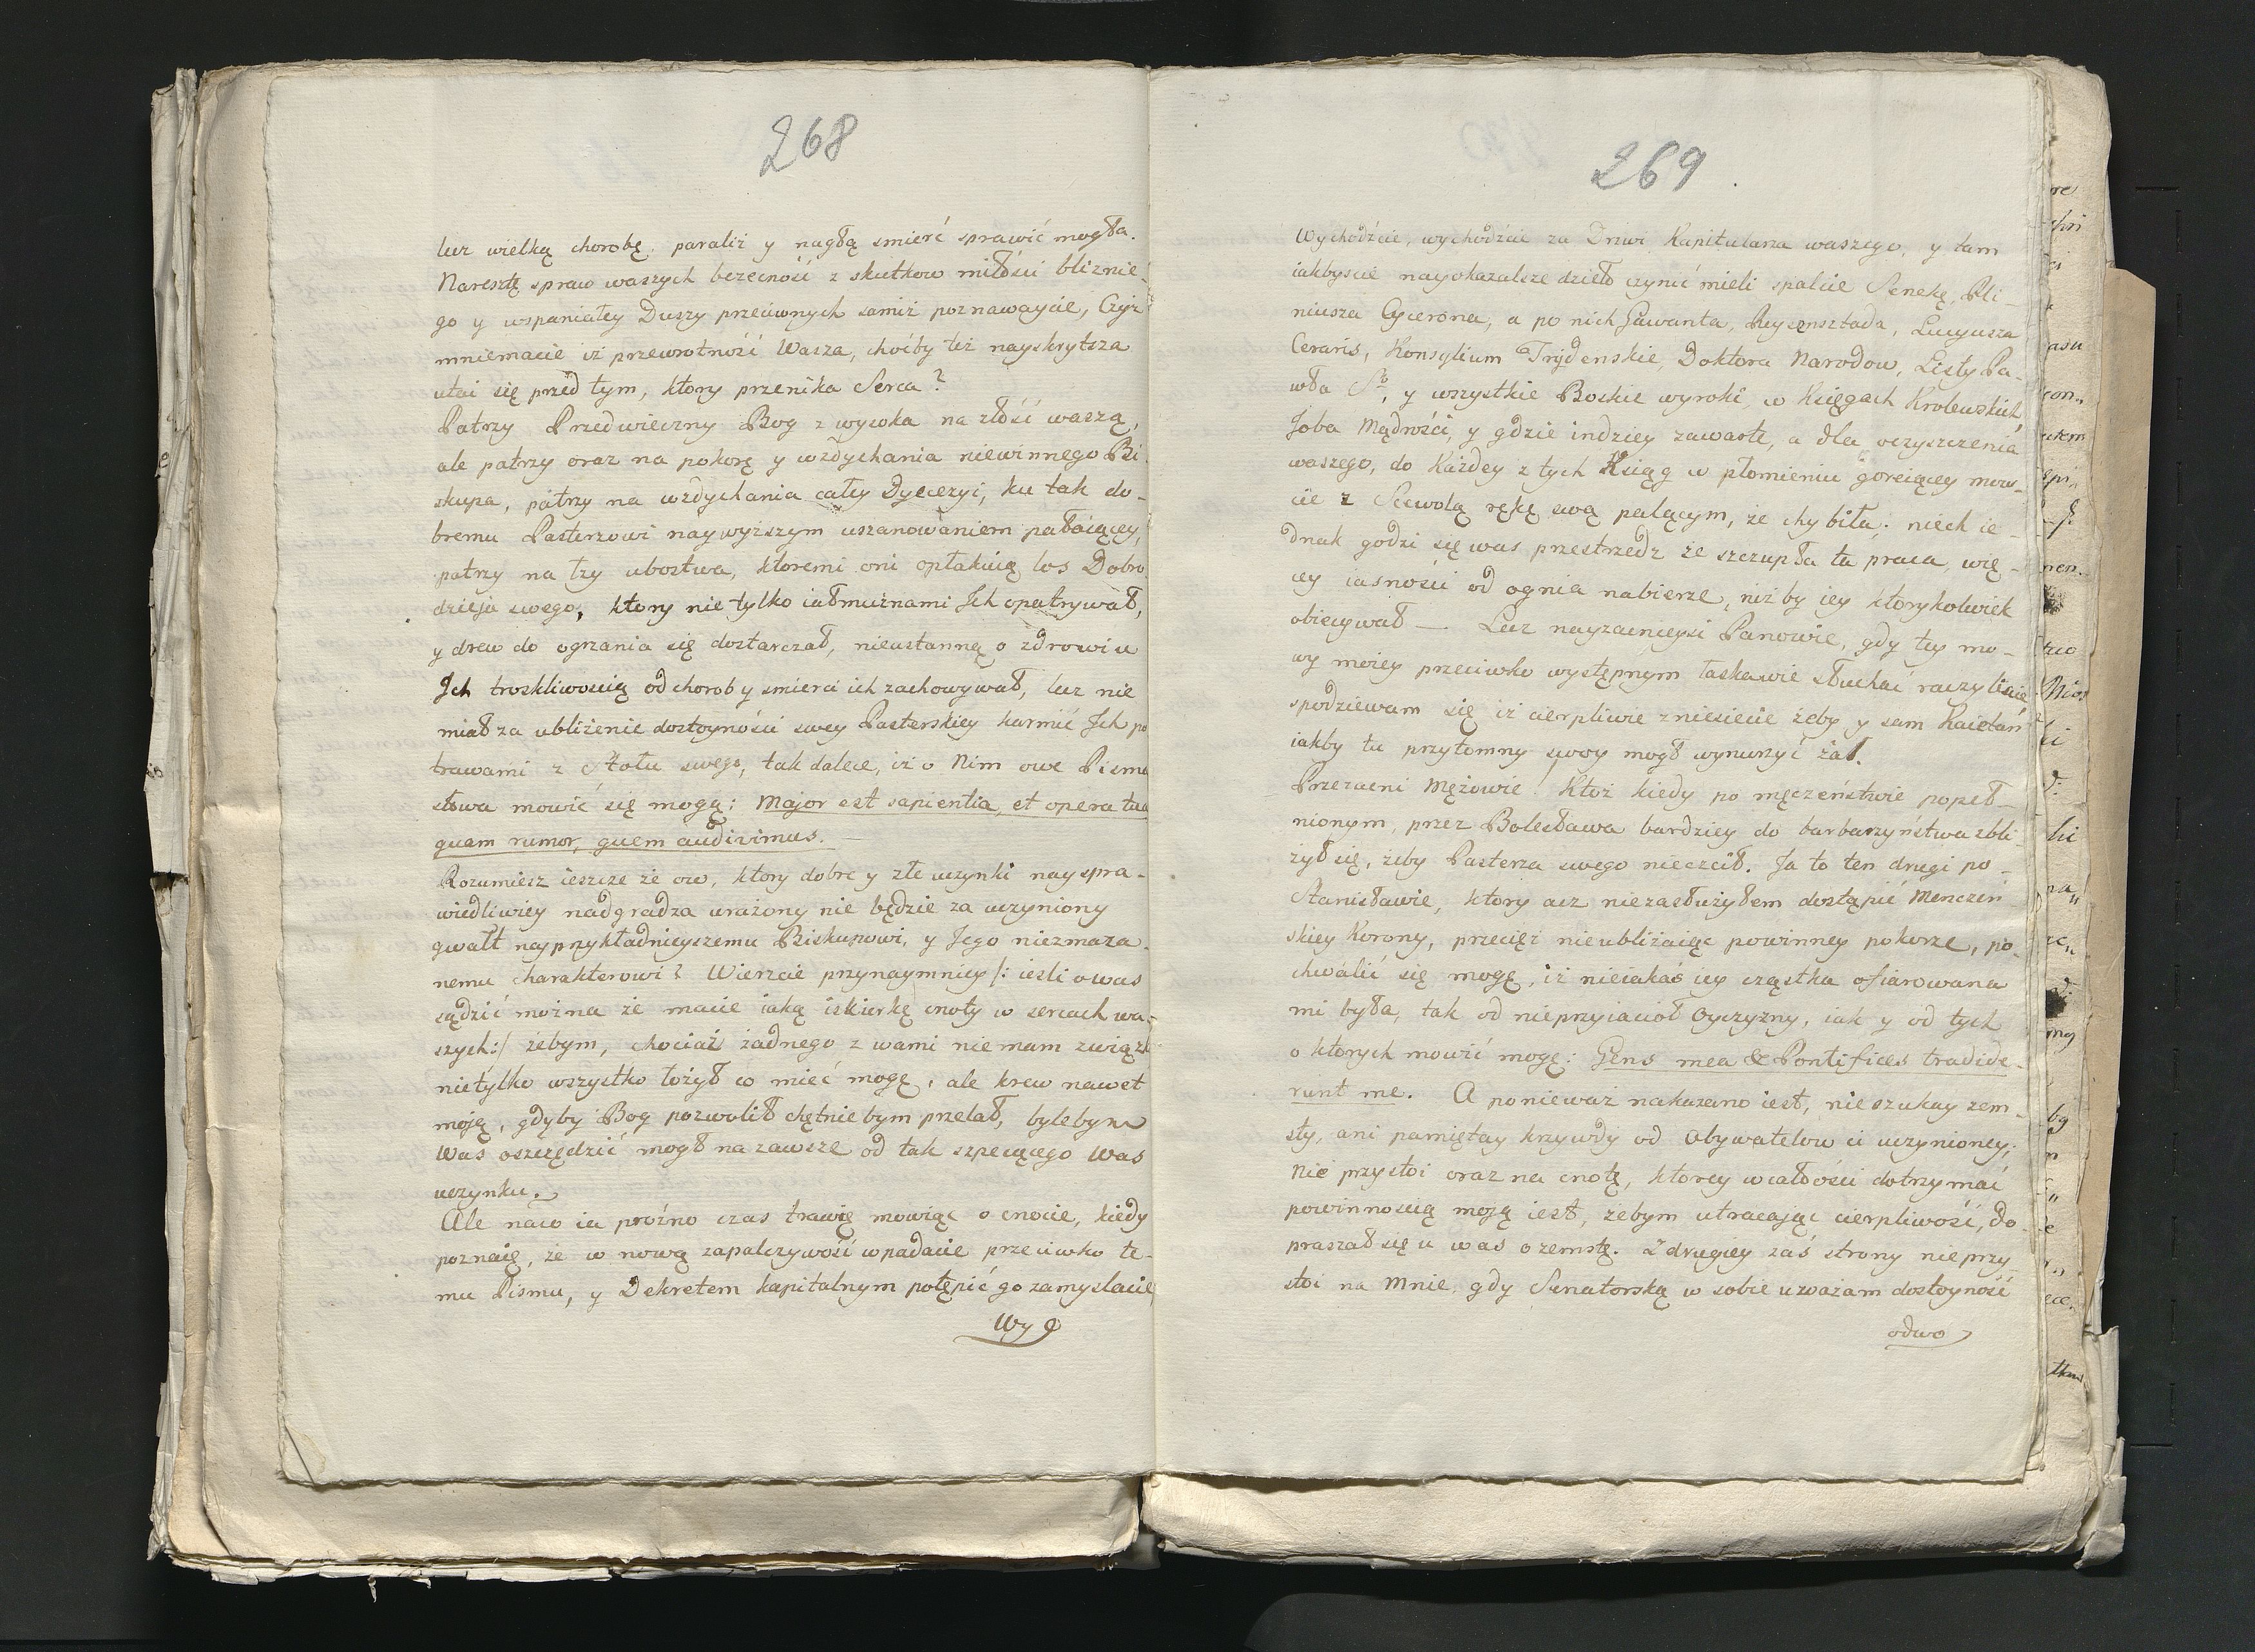 268
lecz wielką chorobę, paraliż y nagłą smierć sprawić mogła.
Naresztę spraw waszych bezecność z skutkow miłości bliznie-
go y wspaniałey Duszy przeciwnych samiż poznawaycie, Czyż
mniemacie iż przewrotność Wasza, choćby też nayskrytsza
utai się przed tym, ktory przenika Serca?
Patrzy Przedwieczny Bog z wysoka na złość waszą,
ale patrzy oraz na pokorę y wzdychania niewinnego Bi-
skupa, patrzy na wzdychania całey Dyecezyi, ku tak do-
bremu Pasterzowi naywyższym uszanowaniem pałaiącey,
patrzy na łzy ubostwa, ktoremi oni opłakuią los Dobro-
dzieja swego, ktory nie tylko iałmużnami Ich opatrywał,
y drew do ogrzania się dostarczał, nieustanną o zdrowiu
Ich troskliwością od chorob y smierci ich zachowywał, lecz nie
miał za ubliżenie dostoyności swey Pasterskiey karmić Ich po
trawami z Stołu swego, tak dalece, iż o Nim owe Pisma
słowa mowić się mogą: Major est sapientia, et opera tua
quam rumor, quem audivimus.
Rozumiesz ieszcze że ow, ktory dobre y złe uczynki nayspra-
wiedliwiey nadgradza urażony nie będzie za uczyniony
gwałt nayprzykładnieyszemu Biskupowi, y Jego niezmaza-
nemu charakterowi? Wierzcie przynaymniey /: iesli o was
sądzić można że macie iaką iskierkę cnoty w sercach wa-
szych :/ żebym, chociaż żadnego z wami nie mam związk
nietylko wszystko łożył co mieć mogę, ale krew nawet
moję, gdyby Bog pozwolił chętnie bym przelał, byle bym
Was oszczędzić mogł na zawsze od tak szpecącego Was
uczynku.
Ale naco ia prożno czas trawię mowiąc o cnocie, kiedy
poznaię, że w nową zapalczywość wpadacie przeciwko te-
mu Pismu, y Dekretem kapitalnym potępić go zamyslacie,
Wy
269
Wychodźcie, wychodźcie za Drzwi Kapitularza waszego, y tam
iakbyscie nayokazalsze dzieło czynić mieli spalcie Senekę, Pli-
niusza Cycerona, a po nich Gawanta, Reysensztada, Lucyusza
Ceraris, Konsylium Trydenskie, Doktora Narodow, Listy Pa-
wła So, y wszystkie Boskie wyroki, w Księgach Krolewskich,
Joba Mądrości, y gdzie indziey zawarte, a dla oczyszczenia
waszego, do Każdey z tych Ksiąg w płomieniu goreiącey mow-
cie z Scewolą rękę swą palącym, że chybiła; niech ie-
dnak godzi się was przestrzedz że szczupła ta praca, wię-
cey iasności od ognia nabierze, niż by iey ktorykolwiek
obiecywał — Lecz nayzacnieysi Panowie, gdy tey mo-
wy moiey przeciwko występnym łaskawie słuchać raczyliscie
spodziewam się iż cierpliwie zniesiecie żeby y sam Kaietan
iakby tu przytomny swoy mogł wynurzyć żal.
Przezacni Mężowie! Ktoż kiedy po męczeństwie popeł-
nionym, przez Bolesława bardziey do barbarzyństwa zbli-
żył się, żeby Pasterza swego nieczcił. Ja to ten drugi po-
Stanisławie, ktory acz niezasłużyłem dostąpić Menczeń-
skiey Korony, przecięż nieubliżaiąc powinney pokorze, po-
chwalić się mogę, iż nieiakaś iey cząstka ofiarowana
mi była, tak od nieprzyiacioł Oyczyzny, iak y od tych
o ktorych mowić mogę: Gens mea & Pontifices tradide-
runt me. A ponieważ nakazano iest, nie szukay zem-
sty, ani pamiętay krzywdy od Obywatelow ci uczynioney;
Nie przystoi oraz na cnotę, ktorey wcałości dotrzymać
powinnością moją iest, żebym utracając cierpliwość, do-
praszał się u was o zemstę. Z drugiey zaś strony nie przy-
stoi na Mnie, gdy Senatorską w sobie uważam dostoyność
odwo